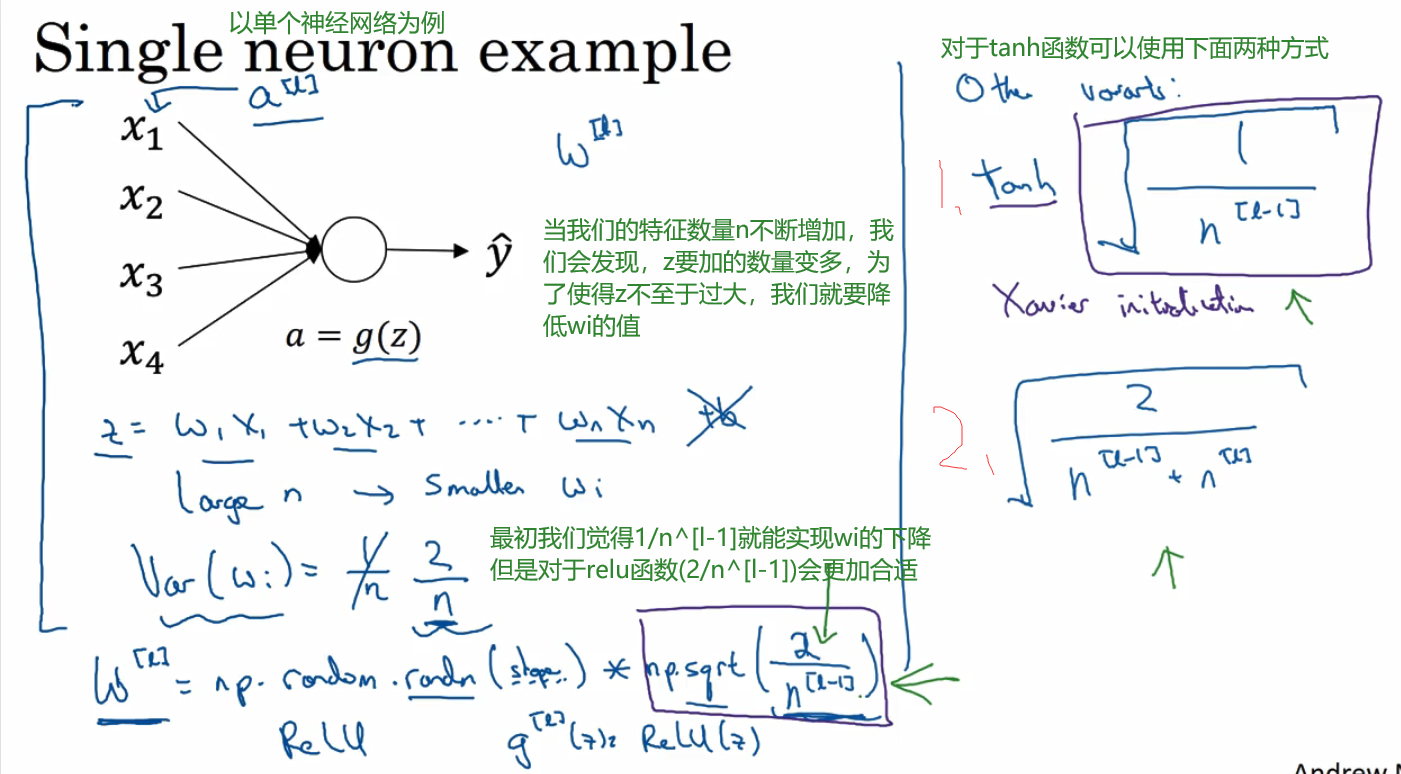 以单个神经网络为例
Single neuron example
a^[l]
x₁
x₂
x₃
x₄
ŷ
a = g(z)
w^[l]
当我们的特征数量n不断增加，我
们会发现，z要加的数量变多，为
了使得z不至于过大，我们就要降
低wi的值
z = w₁x₁ + w₂x₂ + ····+ wₙxₙ +b
Large n → Smaller wᵢ
最初我们觉得1/n^[l-1]就能实现wi的下降
但是对于relu函数(2/n^[l-1])会更加合适
Var(wᵢ) = 1/n 2/n
W^[l] = np.random.randn(shape) * np.sqrt(2/n^[l-1])
ReLU g^[l](z) = ReLU(z)
对于tanh函数可以使用下面两种方式
Other variants:
1. tanh √(1/n^[l-1])
Xavier initialization
2、 √(2/(n^[l-1] + n^[l]))